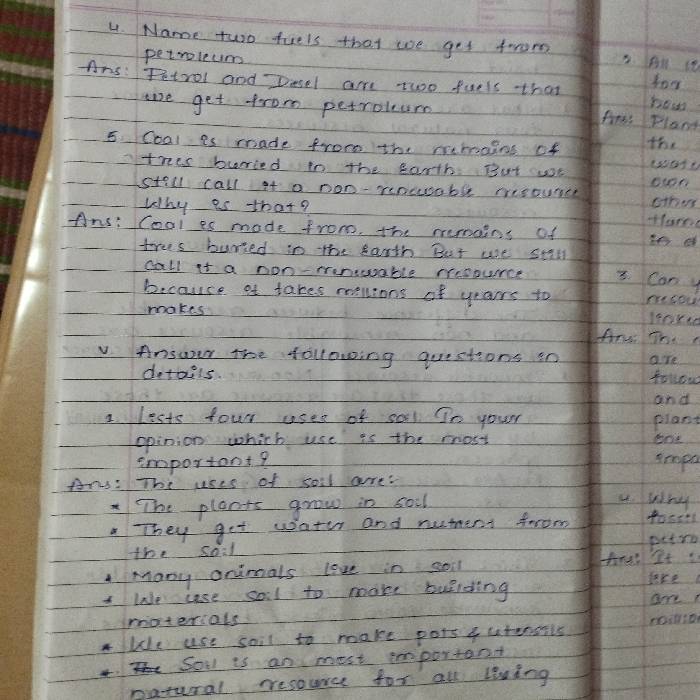 4. Name two fuels that we get from
petroleum
Ans: Petrol and Diesel are two fuels that
we get from petroleum
5. Coal is made from the remains of
trees buried in the Earth. But we
still call it a non-renewable resource
Why is that?
Ans: Coal is made from, the remains of
trees buried in the Earth But we still
call it a non-renewable resource
because it takes millions of years to
makes.
V. Answer the following questions in
details.
1. Lists four uses of soil In your
opinion which use is the most
important?
Ans: The uses of soil are:-
* The plants grow in soil
* They get water and nutrient from
the soil
* Many animals live in soil
* We use soil to make building
materials
* We use soil to make pots & utensils
* The Soil is an most important
natural resource for all living
2. All
for
how
Ans: Plant
the
wate
own
other
in a
3. Can y
resou
linked
Ans: The
are
follow
and
plant
one
impo
4. Why
fossil
petro
Ans: It
like
are
million